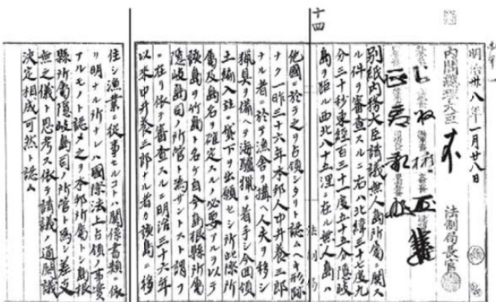 十四
明治卅八年一月廿八日
内閣総理大臣
法制局長官
別紙内務大臣請議無人島所属ニ関ス
ル件ヲ審査スルニ右ハ北緯三十七度九
分三十秒東経百三十一度五十五分隠岐
島ヲ距ル西北八十五浬ニ在ル無人島ハ
他国ニ於テ之ヲ占領シタリト認ムヘキ形跡
ナク一昨三十六年本邦人中井養三郎
ナル者ニ於テ漁舎ヲ構ヘ人夫ヲ移シ
猟具ヲ備ヘテ海驢猟ニ着手シ今回領
土編入並ニ貸下ヲ出願セシ所此際所
属及島名ヲ確定スルノ必要アルヲ以テ
該島ヲ竹島ト名ケ自今島根県所属
隠岐島司ノ所管ト為サントスト謂フニ
在リ依テ審査スルニ明治三十六年
以来中井養三郎ナル者カ該島ニ移
住シ漁業ニ従事セルコトハ関係書類ニ依
リ明ナル所ナレハ国際法上占領ノ事実
アルモノト認メ之ヲ本邦所属トシ島根
県所属隠岐島司ノ所管ト為シ差支
無之儀ト思考ス依テ請議ノ通閣議
決定相成可然ト認ム